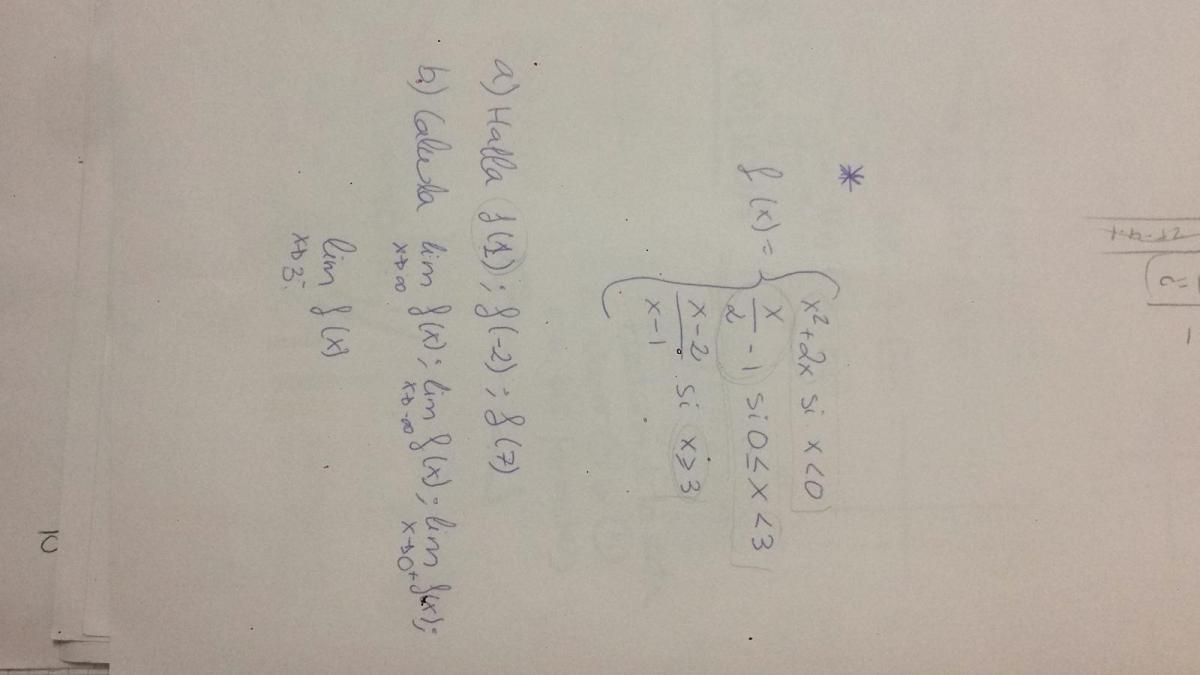 *
f(x) = { x² + 2x si x < 0
x/2 - 1 si 0 ≤ x < 3
x-2/x-1 si x ≥ 3
a) Halla f(1); f(-2); f(7)
b) Calcula lim x→∞ f(x); lim x→-∞ f(x); lim x→0⁺ f(x);
lim x→3⁻ f(x)
10